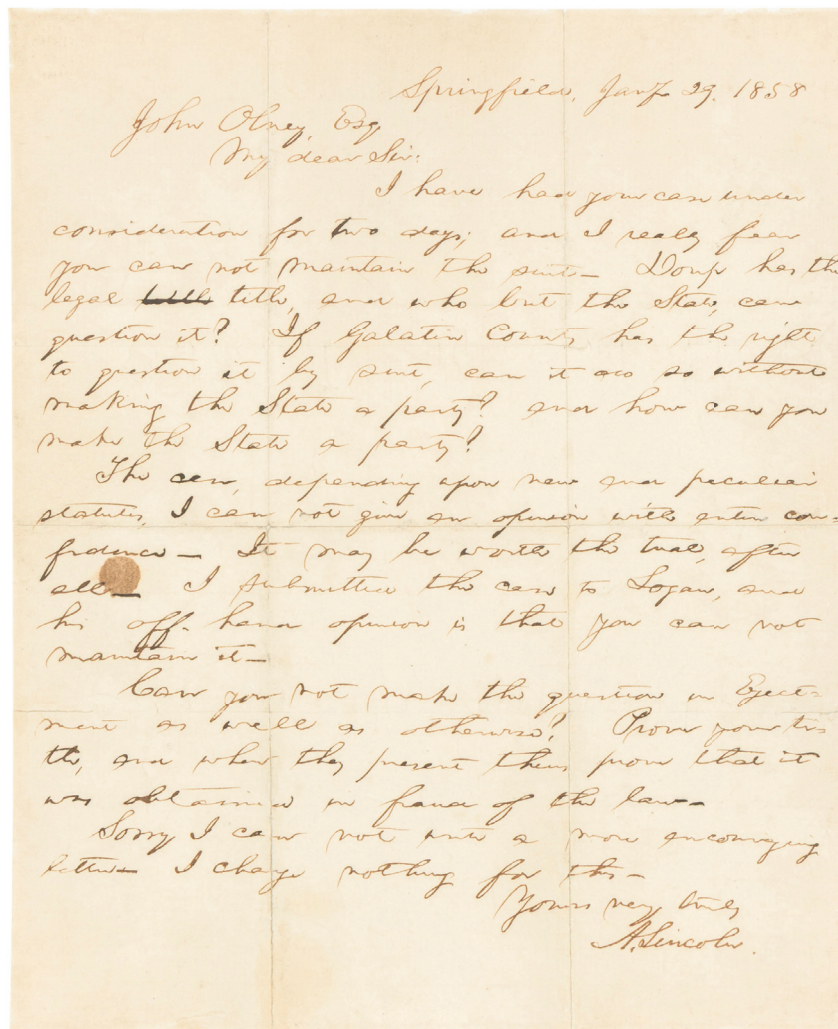 Springfield, Jany 29. 1858
John Olney, Esq.
My dear Sir:
I have had your case under
consideration for two days; and I really fear
you can not maintain the suit— Doup has the
legal title, and who but the State, can
question it? If Galatin County has the right
to question it by suit, can it do so without
making the State a party? and how can you
make the State a party?
The case, depending upon new and peculiar
statutes, I can not give an opinion with entire con=
fidence— It may be worth the trial, after
all— I submitted the case to Logan, and
his off-hand opinion is that you can not
maintain it—
Can you not make the question in Eject=
ment as well as otherwise? Prove your ti=
tle, and when they present theirs prove that it
was obtained in fraud of the law—
Sorry I can not write a more encouraging
letter— I charge nothing for this—
Yours very truly
A. Lincoln.